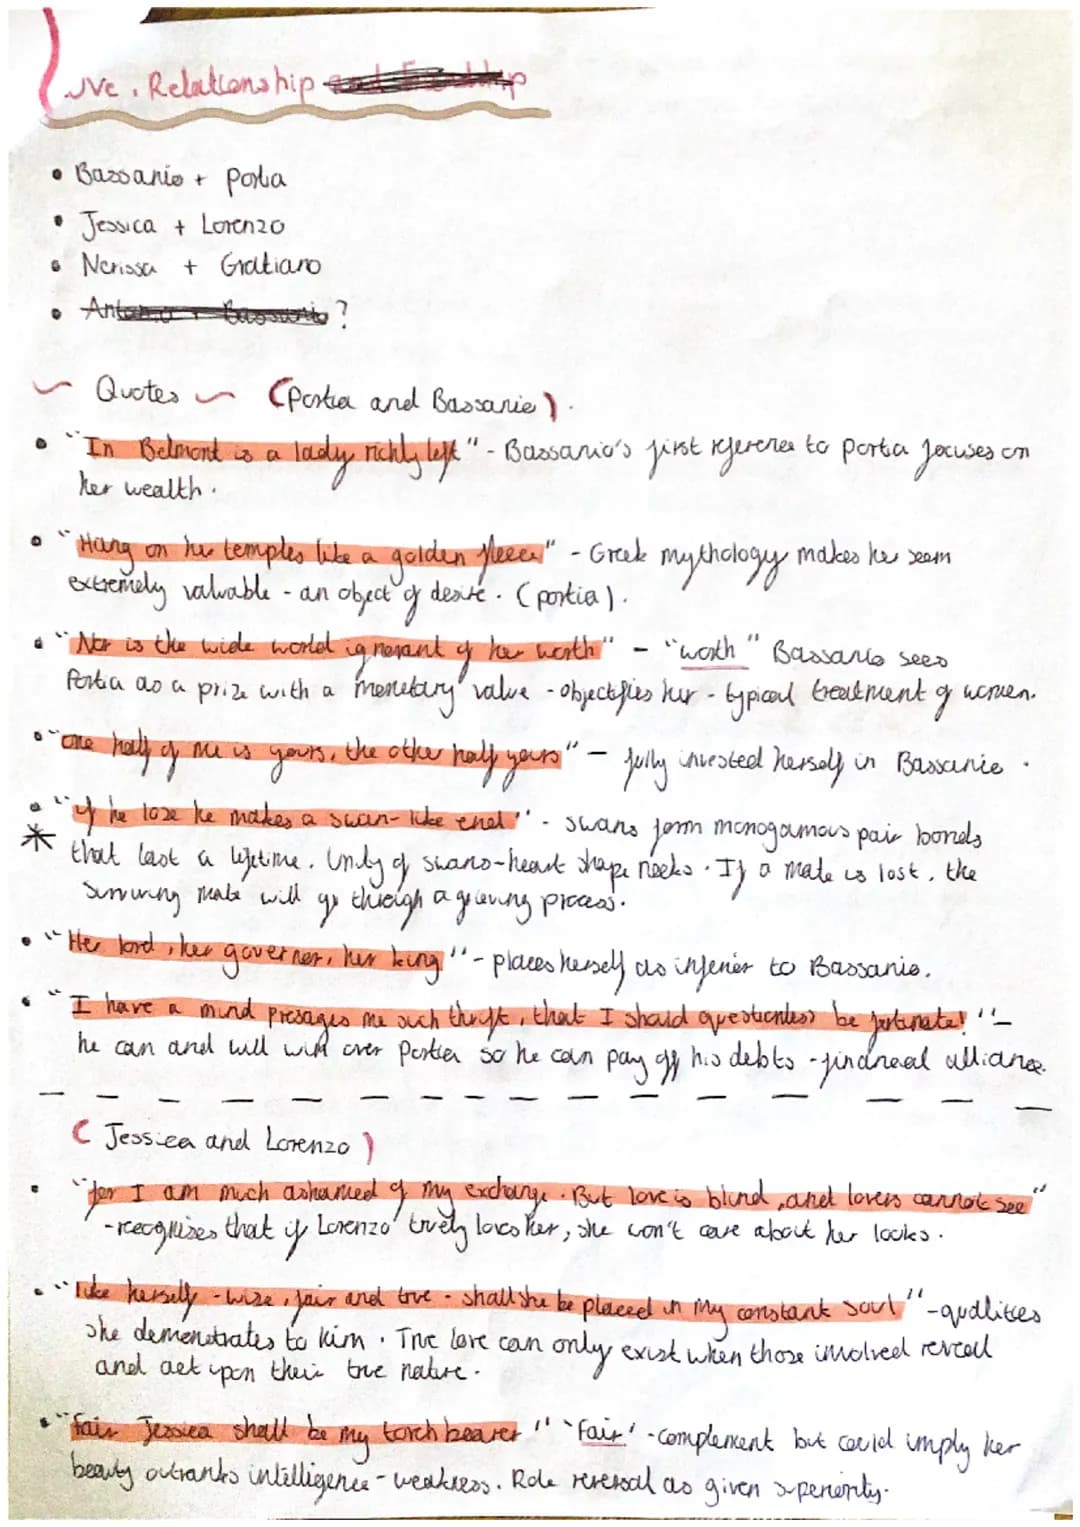 Love, Relationship and Friendship
• Bassanio + Portia
• Jessica + Lorenzo
• Nerissa + Gratiano
• Antonio + Bassanio ?
~ Quotes ~ (Portia and Bassanio).
• "In Belmont is a lady richly left" - Bassanio's first reference to Portia focuses on
her wealth.
• "Hang on her temples like a golden fleece" - Greek mythology makes her seem
extremely valuable - an object of desire. (portia).
• "Nor is the wide world ignorant of her worth" - "worth" Bassanio sees
Portia as a prize with a monetary value - objectifies her - typical treatment of women.
• "one half of me is yours, the other half yours" - fully invested herself in Bassanio.
• "if he lose he makes a swan-like end" - swans form monogamous pair bonds
* that last a lifetime. Unity of swans-heart shape necks. If a mate is lost, the
surviving mate will go through a grieving process.
• "Her lord, her governer, her king" - places herself as inferior to Bassanio.
• "I have a mind presages me such thrift, that I should questionless be fortunate!" -
he can and will win over Portia so he can pay off his debts - financial alliance.
(Jessica and Lorenzo)
• "for I am much ashamed of my exchange. But love is blind, and lovers cannot see"
- recognises that if Lorenzo truely loves her, she won't care about her looks.
• "like herself - wise, fair and true - shall she be placed in my constant soul" - qualities
she demonstrates to him. True love can only exist when those involved reveal
and act upon their true nature.
• "fair Jessica shall be my torch bearer" 'Fair' - complement but could imply her
beauty outranks intelligence - weakness. Role reversal as given superiority.